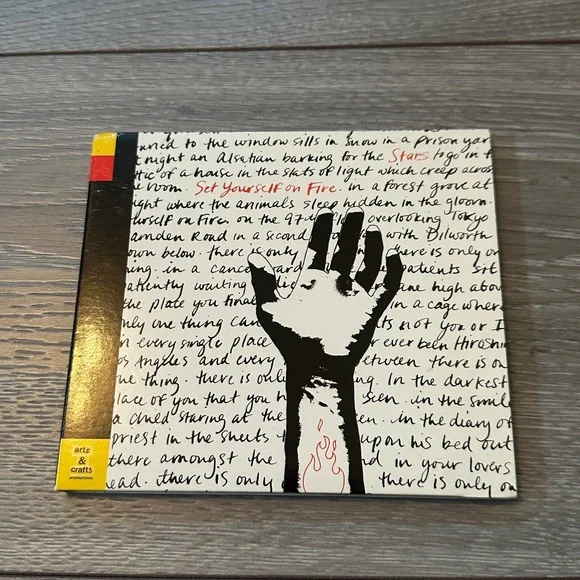 to the window sills in snow in a prison yar
night an Alsatian barking for the Stars to go in t
tic of a house in the slats of light which creep across
e room. Set Yourself on Fire. in a forest grove at
ight where the animals sleep hidden in the gloom.
urself on Fire. on the 97 overlooking Tokyo
amden Road in a second with Dilworth
own below. there is only there is only or
ing. in a cance ard patients sit
atiently waiting ane high abov
the place you final in a cage where
nly one thing can ts not you or I
n every single place r ever been Hiroshi
os Angeles and every etween there is on
ne thing. there is onl g. In the darkest
lace of you that you h seen. in the smile
a child staring at the en. in the diary of
priest in the sheets upon his bed out
there amongst the d in your lovers
ead. there is only there is only on
arts
&
crafts
INTERNATIONAL